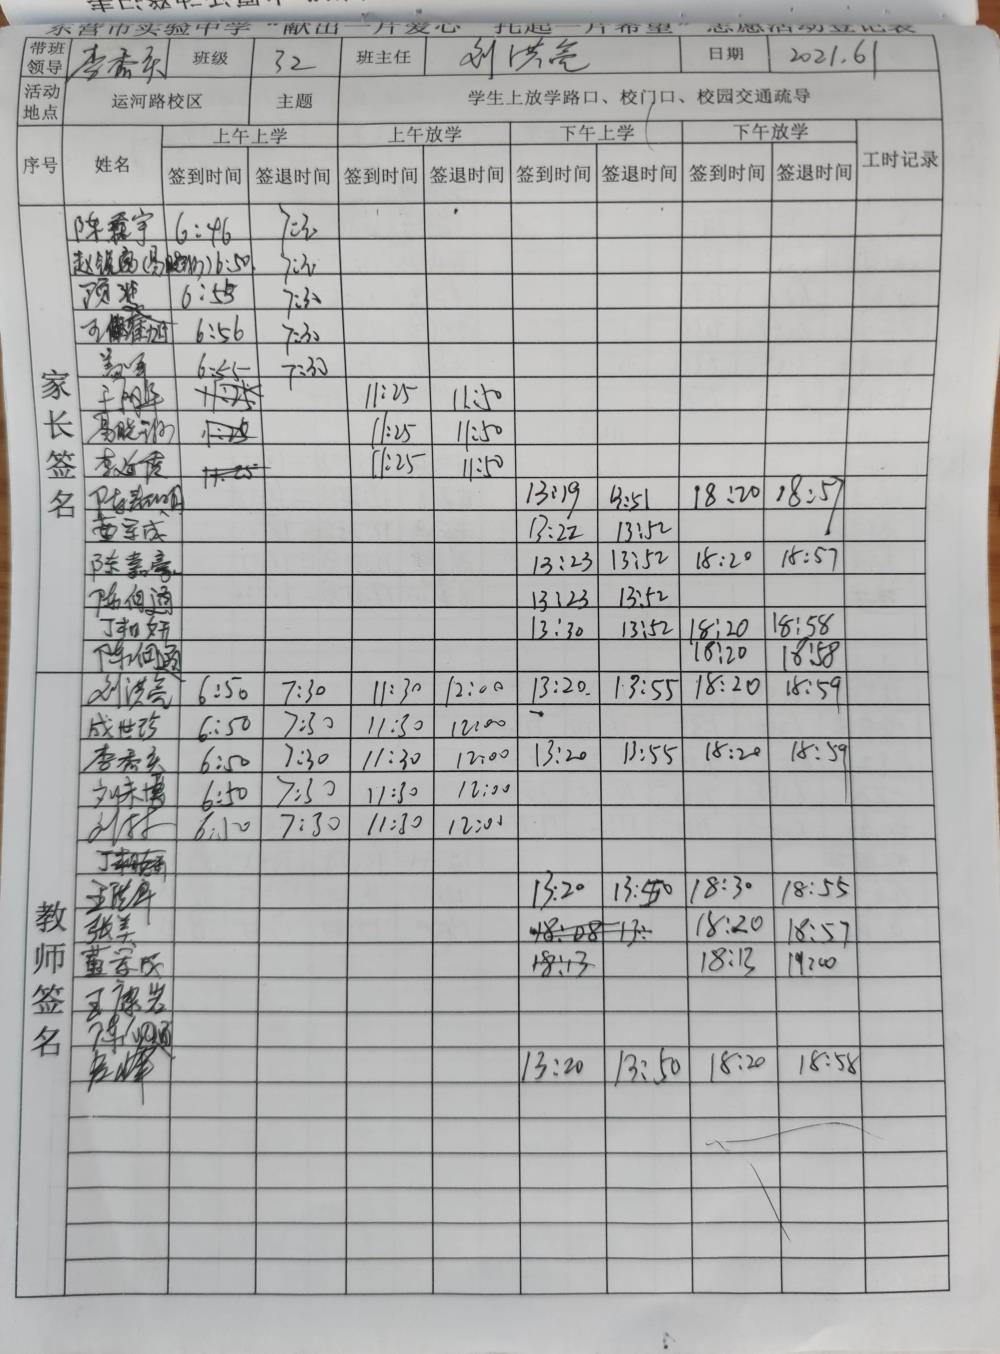 东营市实验中学“献出一片爱心 托起一片希望”志愿活动登记表
带班领导 李秀英 班级 32 班主任 刘洪亮 日期 2021.61
活动地点 运河路校区 主题 学生上放学路口、校门口、校园交通疏导
序号 姓名 上午上学 上午放学 下午上学 下午放学 工时记录
签到时间 签退时间 签到时间 签退时间 签到时间 签退时间 签到时间 签退时间
家长签名
陈 宇 6:46 7:30
6:50 7:30
6:55 7:30
6:56 7:30
6:55 7:30
11:25 11:50
高晓 11:25 11:50
李 11:25 11:50
陈 13:19 13:51 18:20 18:57
董学成 13:22 13:52
陈嘉豪 13:23 13:52 18:20 18:57
陈伯通 13:23 13:52
丁 妍 13:30 13:52 18:20 18:58
陈伯通 18:20 18:58
教师签名
刘洪亮 6:50 7:30 11:30 12:00 13:20 13:55 18:20 18:59
成世珍 6:50 7:30 11:30 12:00
李秀英 6:50 7:30 11:30 12:00 13:20 13:55 18:20 18:59
刘 博 6:50 7:30 11:30 12:00
刘 6:50 7:30 11:30 12:00
王 13:20 13:50 18:30 18:55
张美 18:20 18:57
董学成 18:13 18:13 19:00
王康岩
陈伯通
13:20 13:50 18:20 18:58